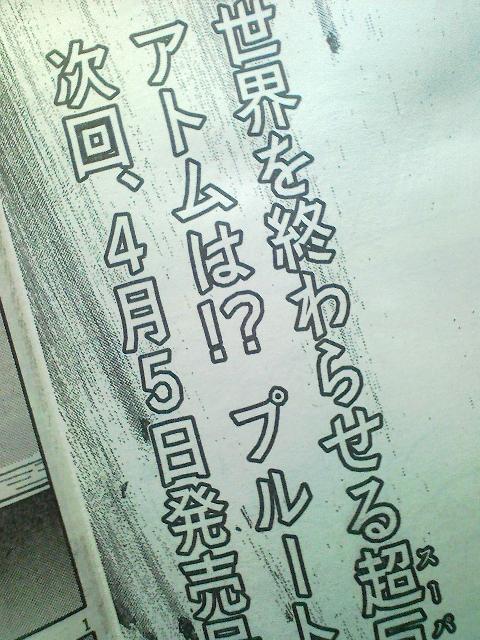 世界を終わらせる超巨
スーパ
アトムは!? プルート
次回、4月5日発売号
1